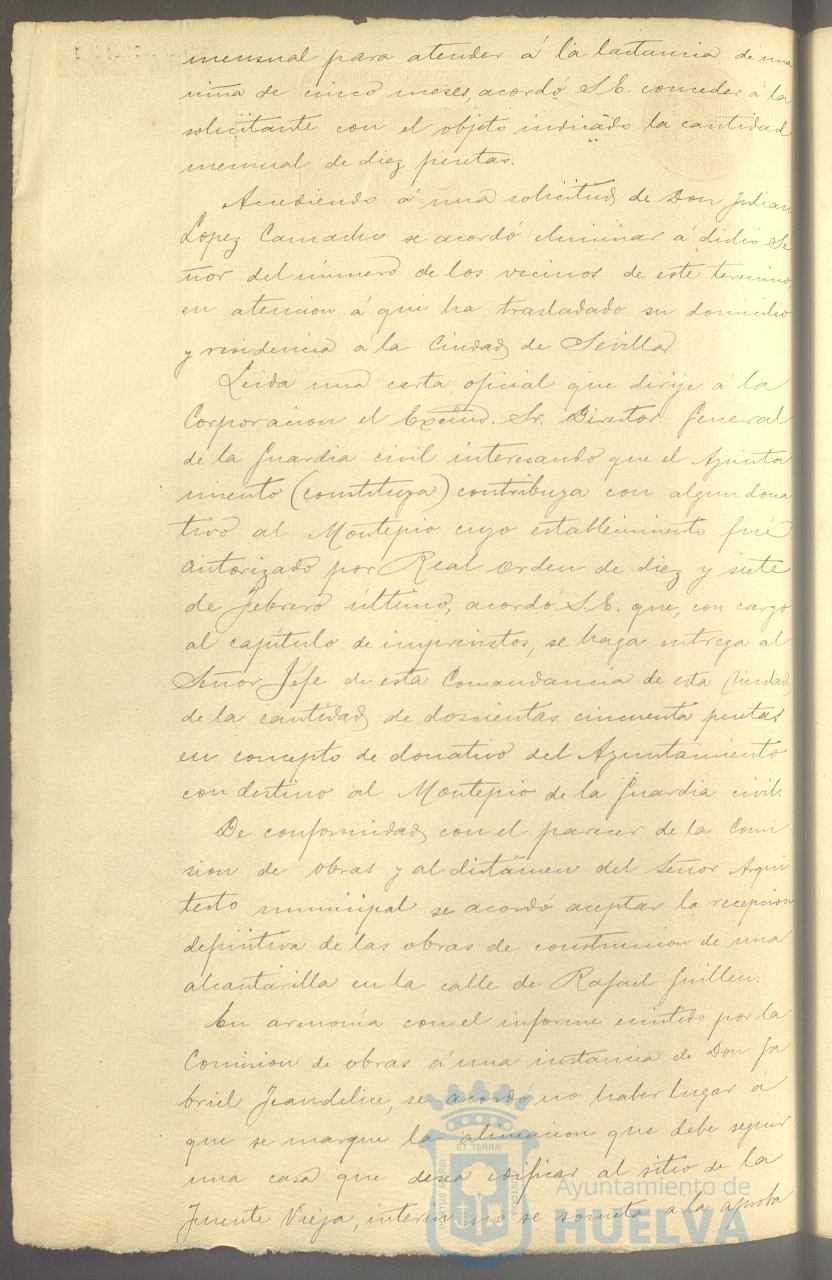 mensual para atender á la lactancia de una
niña de cinco meses, acordó S.E. conceder á la
solicitante con el objeto indicado la cantidad
mensual de diez pesetas.
Accediendo á una solicitud de Don Julian
Lopez Camacho se acordó eliminar á dicho Se
ñor del número de los vecinos de este termino,
en atencion á que ha trasladado su domicilio
y residencia á la Ciudad de Sevilla
Leida una carta oficial que dirije á la
Corporacion el Excmo. Sr. Director General
de la Guardia civil interesando que el Ayunta
miento (constituya) contribuya con algun dona
tivo al Montepio cuyo establecimiento fué
autorizado por Real orden de diez y siete
de Febrero último, acordó S.E. que, con cargo
al capítulo de imprevistos, se haga entrega al
Señor Jefe de esta Comandancia de esta Ciudad
de la cantidad de doscientas cincuenta pesetas
en concepto de donativo del Ayuntamiento
con destino al Montepio de la Guardia civil.
De conformidad con el parecer de la Comi
sion de obras y al dictámen del Señor Arqui
tecto municipal se acordó aceptar la recepcion
definitiva de las obras de construccion de una
alcantarilla en la calle de Rafael Guillen.
En armonía con el informe emitido por la
Comision de obras á una instancia de Don Ga
briel Jeandelice, se acordó no haber lugar á
que se marque la alineacion que debe seguir
una casa que desea edificar al sitio de la
Fuente Vieja, interin no se someta a la aproba
ET TERRÆ
PORTUS MARIS
CUSTODIA
Ayuntamiento de
HUELVA